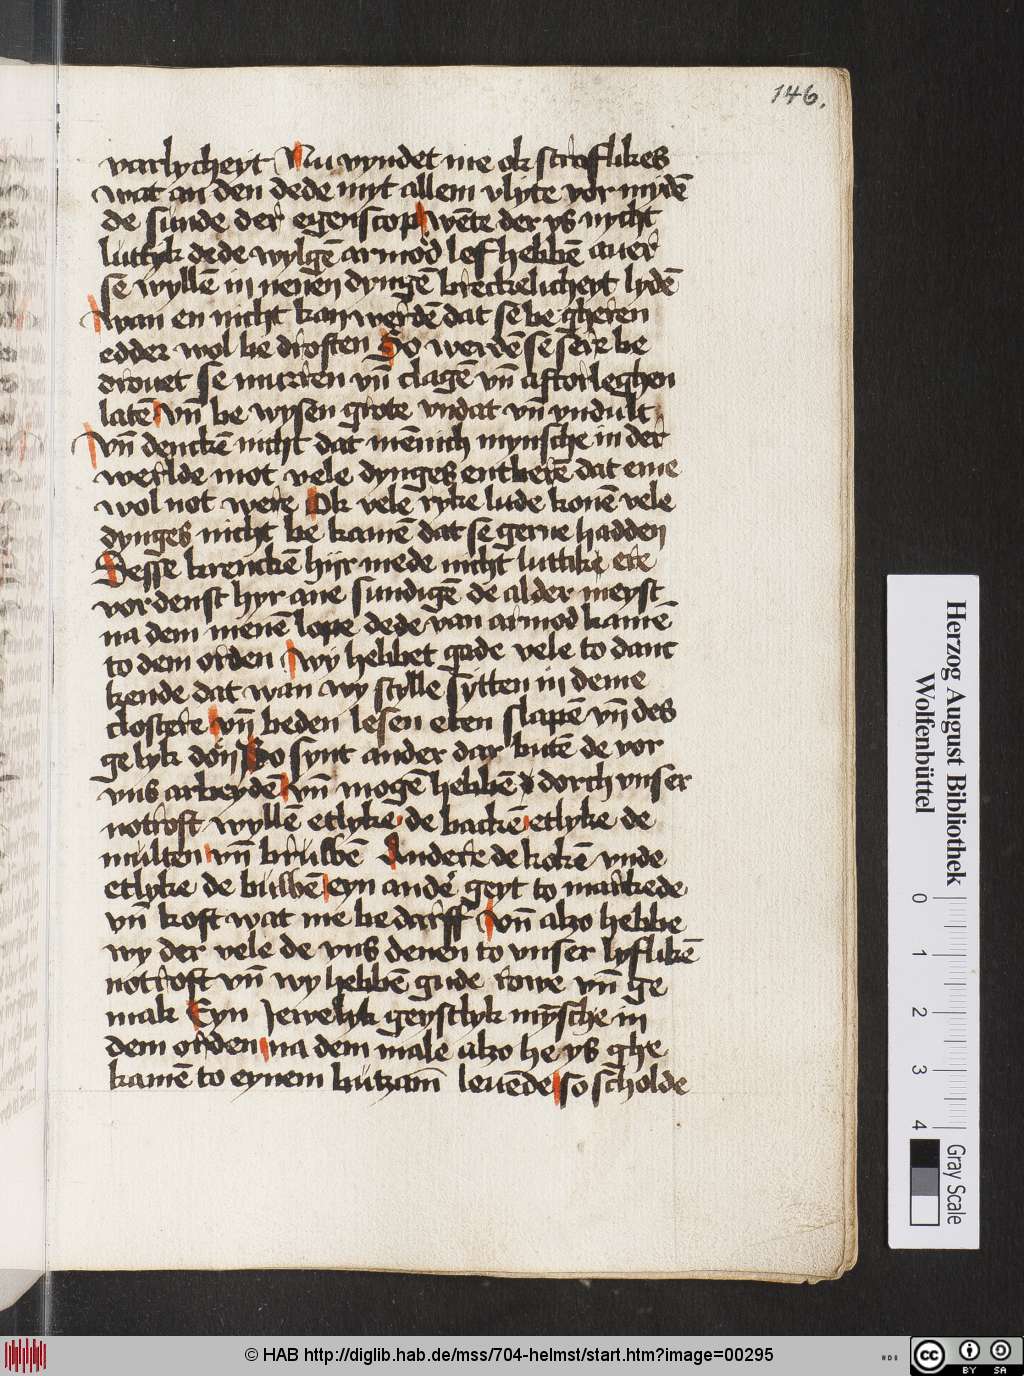 146.
varlycheyt Nu vyndet me ok straflikes
wat an den dede myt allem vlyte vor mydē
de sunde der eigenscop wēte der ys nycht
luttyk dede wylgē armod lef hebbē auer
se wyllē in nenen dyngē breckelicheyt lydē
wan en nicht kan werdē dat se be gheren
edder wol be drosten So werdē se sere be
drouet Se murren vn̄ clagē vn̄ aftorleghen
latē vn̄ be wysen grote vndat vn̄ vndult
vn̄ denckē nicht dat mēnich mynsche in der
werlde mot vele dynges entberē dat eme
wol not were Ok vele ryke lude konē vele
dynges nicht be kamē dat se gerne hadden
Desse krenckē hijr mede nicht luttike ere
vordenst hyr ane sundigē de alder meyst
na dem menē lope dede van armod kamē
to dem orden Wy hebbet gade vele to danc
kende dat wan wy stylle sytten in deme
clostere vn̄ beden lesen eten slapē vn̄ des
ge lyk don So synt ander dar butē de vor
vns arbeydē vn̄ mogē hebbē dorch vnser
notroft wyllē etlyke de backē etlyke de
multen vn̄ bruwē Andere de kokē vnde
etlyke de buwē eyn ander geyt to markede
vn̄ koft wat me be darff vn̄ alzo hebbe
wy der vele de vns denen to vnser lyflikē
notroft vn̄ wy hebbē gude rowe vn̄ ge
mak Eyn Jewelyk geystlyk mȳsche in
dem orden na dem male alzo he ys ghe
kamē to eynem butzam̄ leuēde so scholde
Herzog August Bibliothek
Wolfenbüttel
0 1 2 3 4
Gray Scale
© HAB http://diglib.hab.de/mss/704-helmst/start.htm?image=00295
HAB
cc BY SA